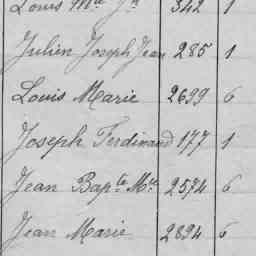 Louis Mie Jn 342 1
Julien Joseph Jean 285 1
Louis Marie 2699 6
Joseph Ferdinand 177 1
Jean Bapte Mie 2574 6
Jean Marie 2894 6